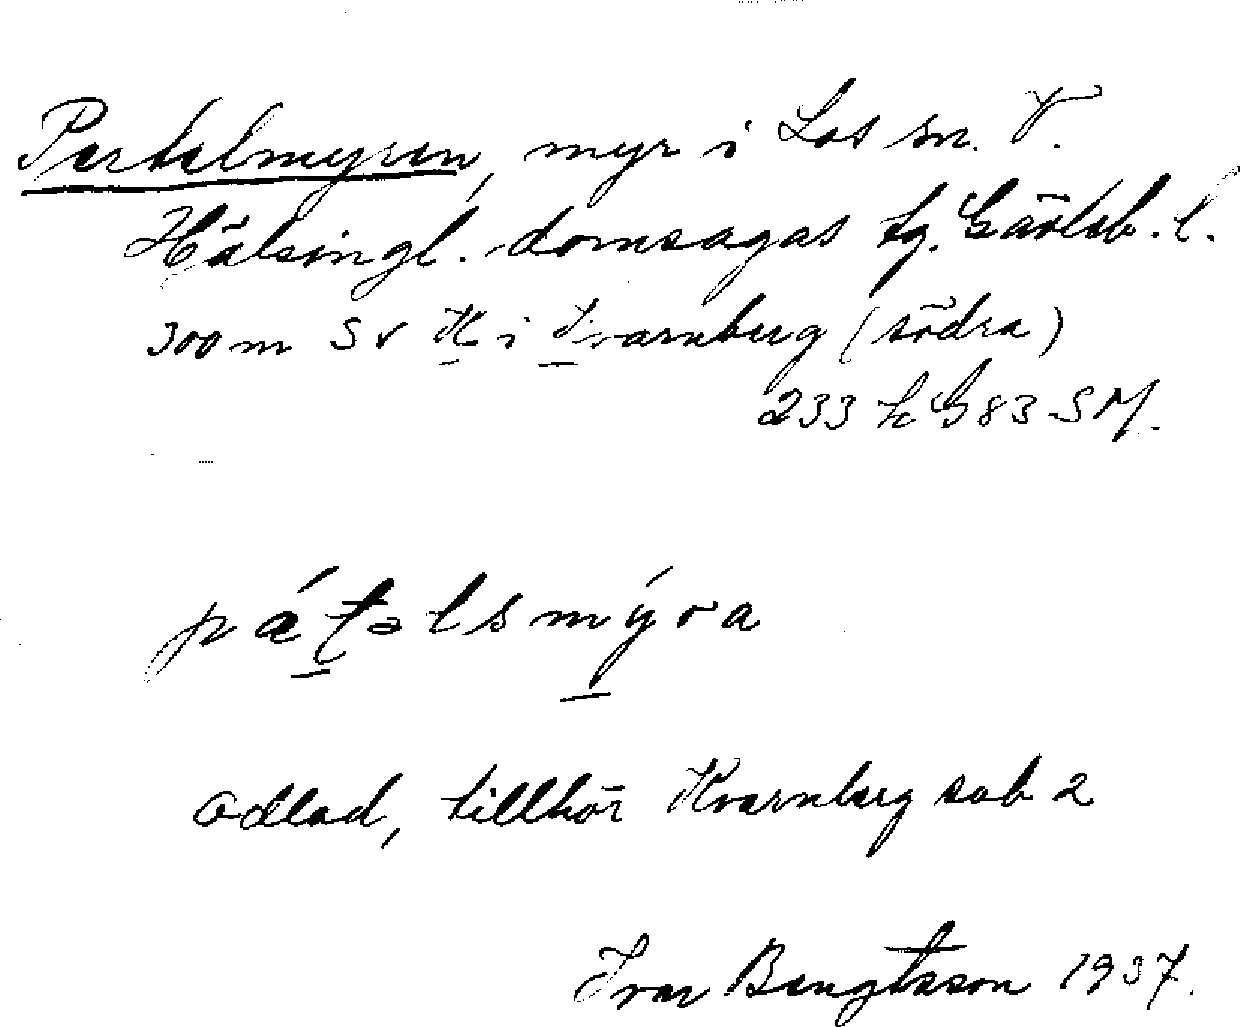 Pertelmyren, myr i Los sn. V.
Hälsingl. domsagas tg. Gävleb. l.
300 m SV K i Kvarnberg (södra)
233 h G 83 SM.
pátəlsmýra
Odlad, tillhör Kvarnberg sab 2
Ivar Bengtsson 1937.